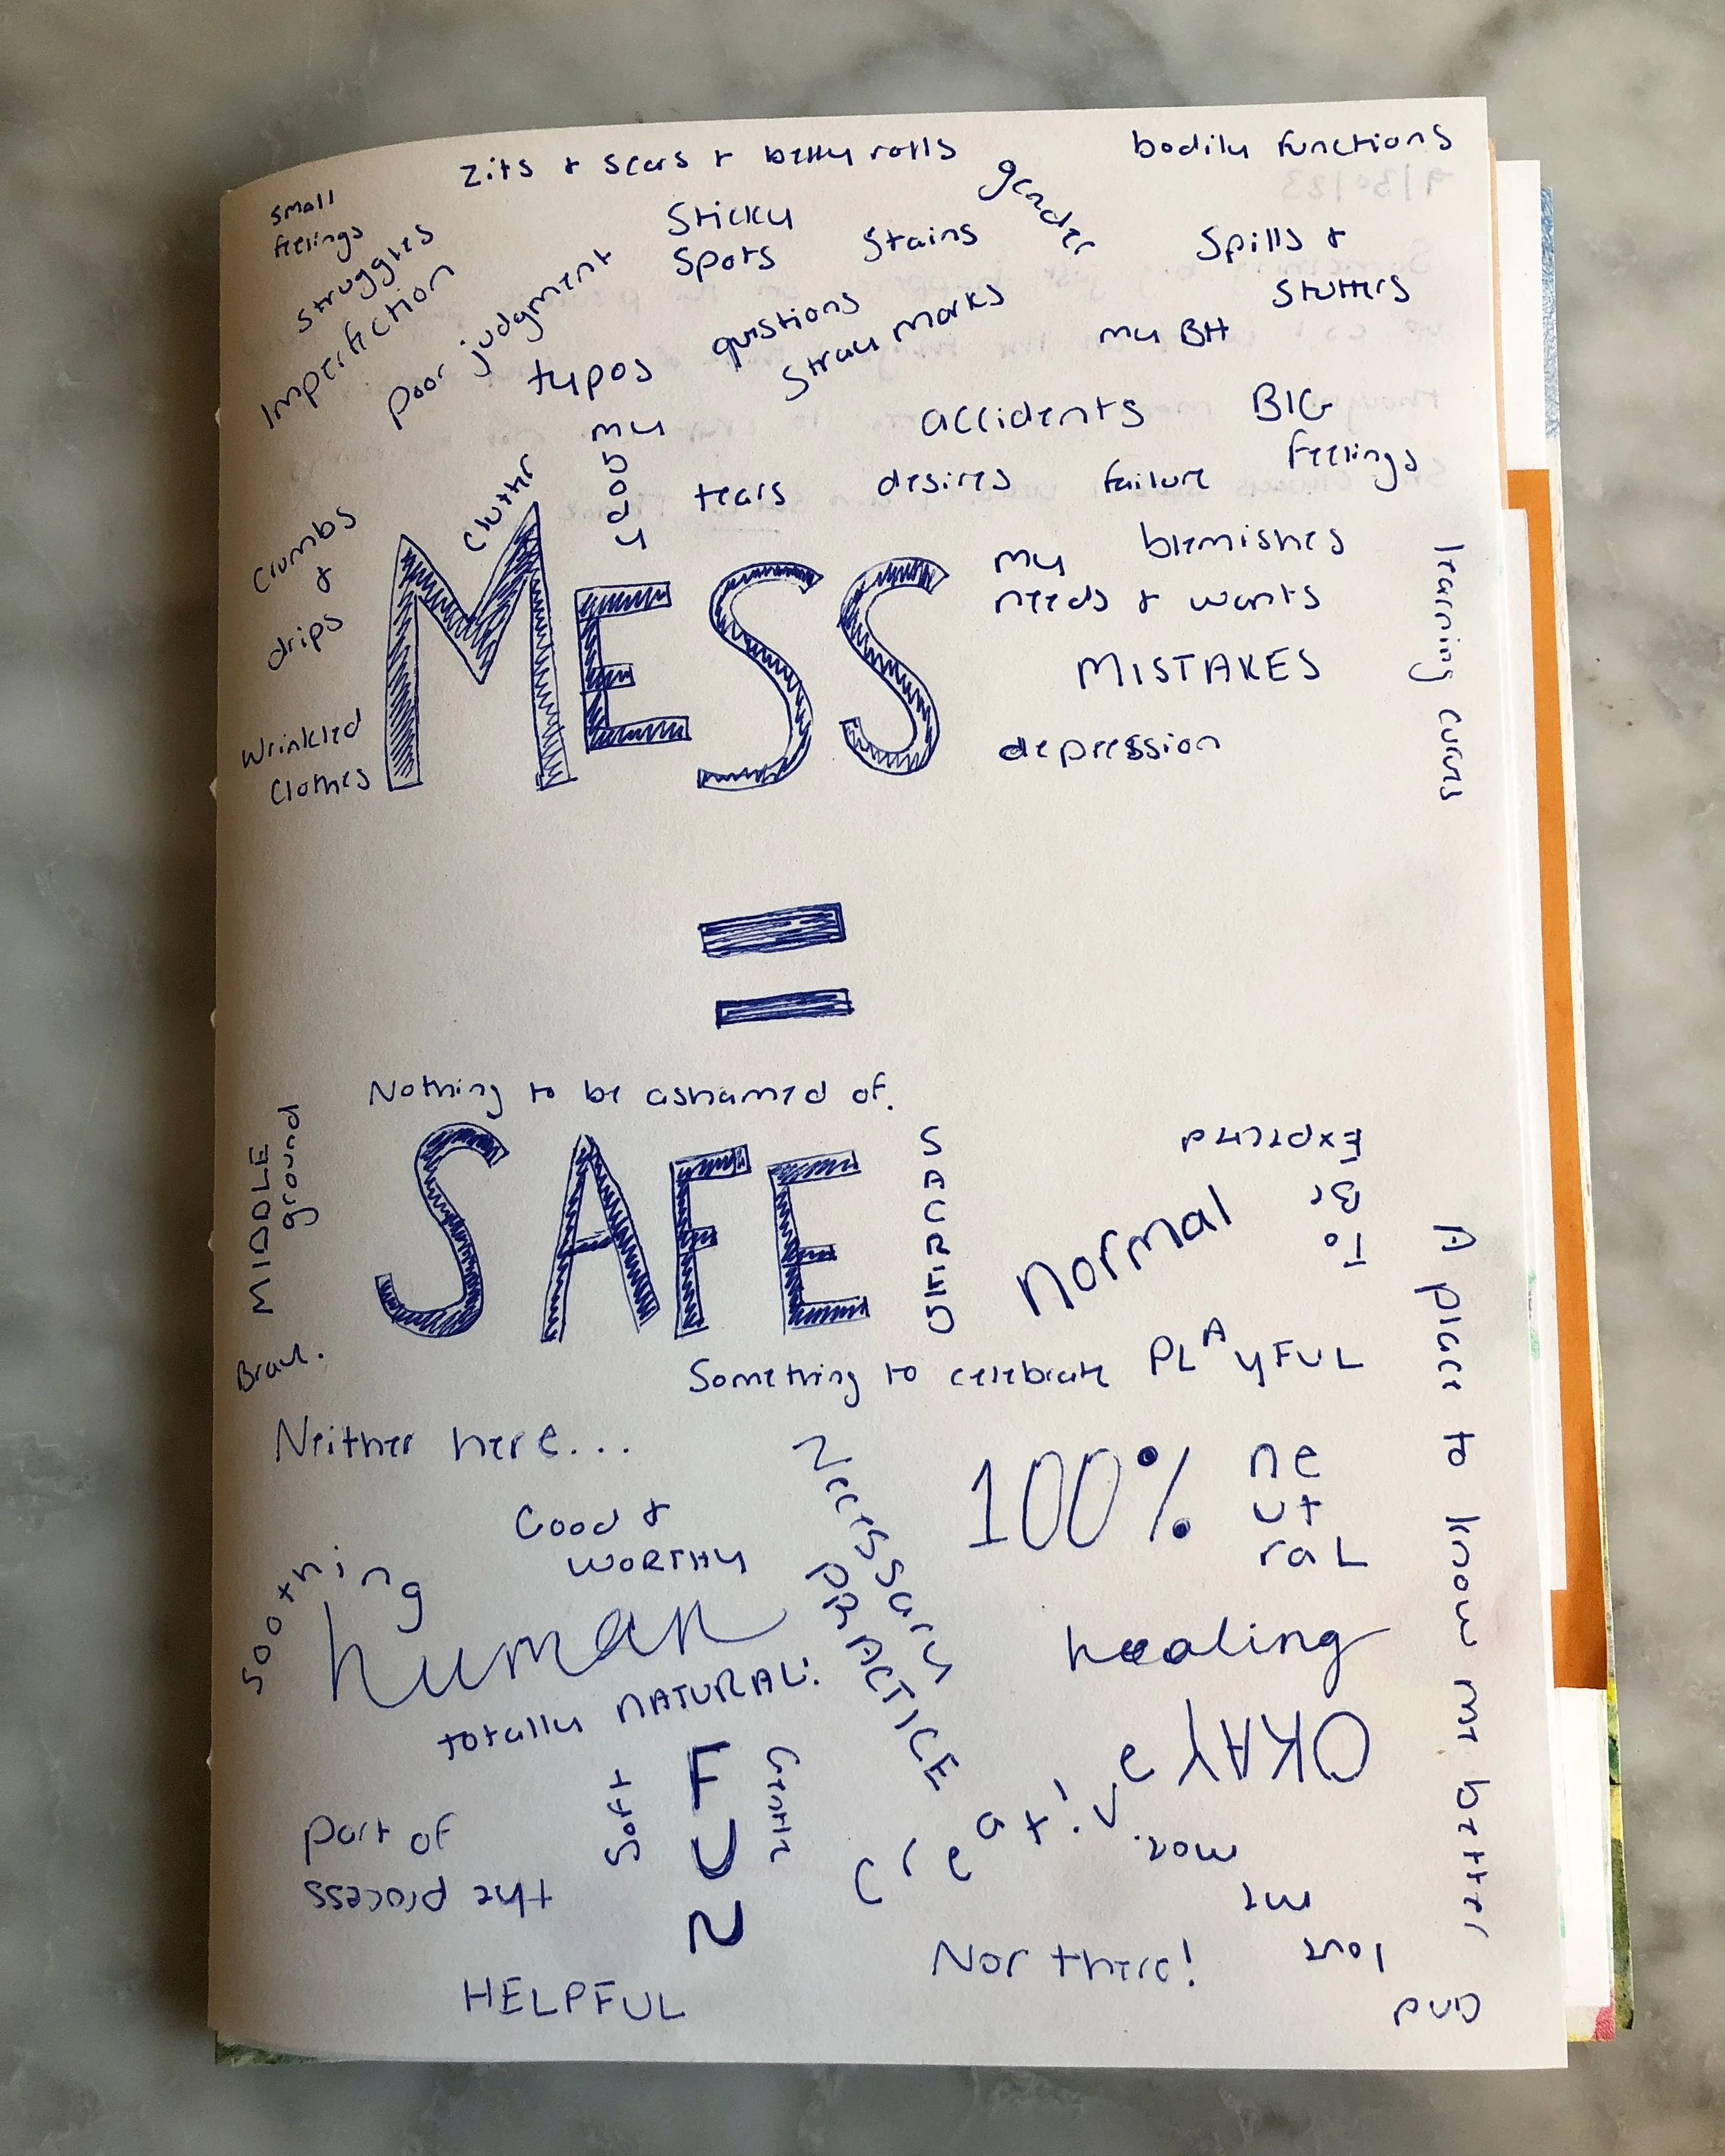 zits + scars + belly rolls
bodily functions
small
feelings
struggles
Imperfection
poor judgment
Sticky
Spots
Stains
gender
Spills +
Stutters
typos
questions
Stray marks
my BH
my
body
accidents
BIG
feelings
clutter
tears
desires
failure
Crumbs
+
drips
Wrinkled
Clothes
MESS
my
needs + wants
blemishes
MISTAKES
depression
learning curves
=
Nothing to be ashamed of.
MIDDLE
ground
SAFE
SACRED
normal
To
Be
Expected
Brave.
Something to celebrate
PLAYFUL
A place to know me better
and
love
me
more.
Neither here...
Necessary
PRACTICE
100%
ne
ut
raL
Good +
WORTHY
soothing
human
healing
totally NATURAL!
OKAY
Soft
FUN
Gentle
creative
part of
the process
Nor there!
HELPFUL
9/30/23